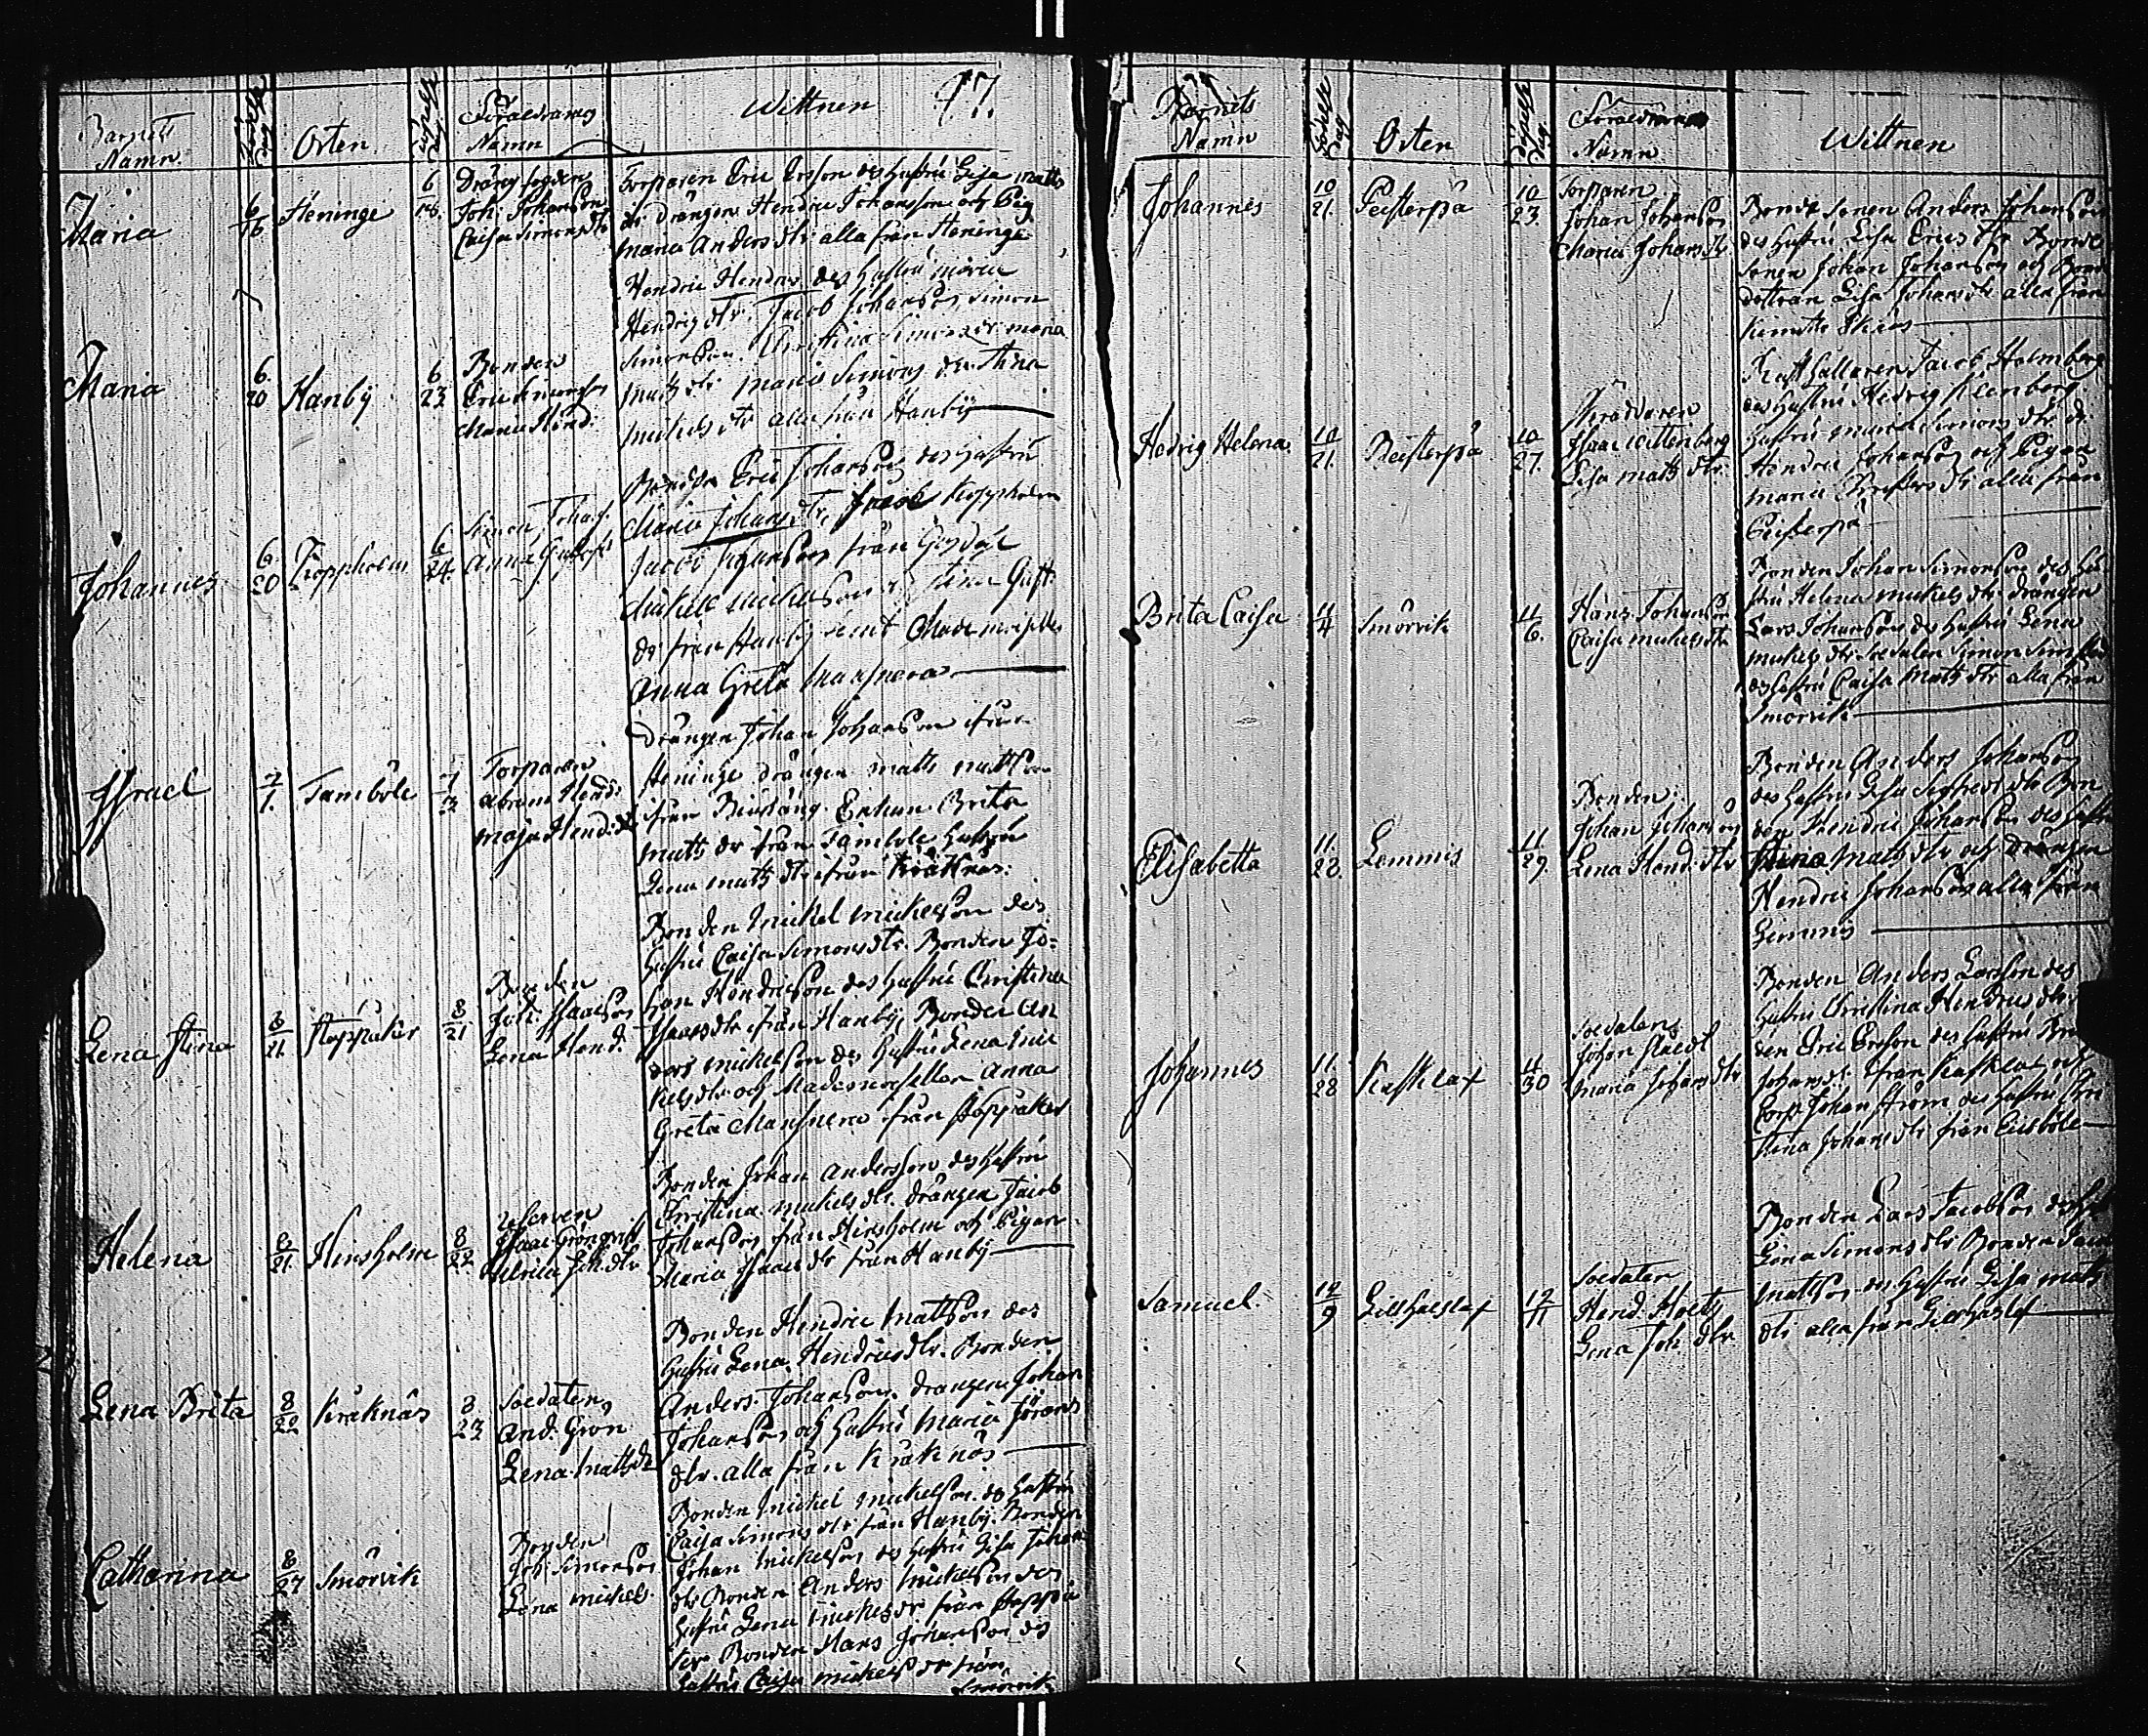 Wittnen 17.
Barnets Namn Födelse dag Orten Döpelse dag Föräldrarnes Namn
Maria 6/16 Heninge 6/18.
Drängsonden
Joh: Johanson
Caisa Simonsdtr
Torparen Eric Ersson des hustru Lisa Matts
dr drängen Hendric Johansson och Pig
Maria Anders dtr alla från Heninge
Maria 6/20 Hanby 6/23
Bonden
Eric Simonson
Maria Hend:
Hendric Hendrics des hustru Maria
Hendrics dtr. Jacob Johanson, Simon
Simonson Christina Simons dr Maria
Matts dtr Maria Simons dtr Stina
Mickels dtr alla från Hanby
Johannes 6/20 Kopparholm 6/24.
Simon Johans.
Anna Gustafs
Bonden Eric Johanson des hustru
Maria Johans dtr, Jacob
Jacob Johanson från
Mickel Mickelson Stina Gust:
dr från Hanby samt Mademoiselle
Anna Greta
Israel 7/1. Tamböle 7/3
Torparen
Abram Hend:
Maja Hend: dtr
Drängen Johan Johanson ifrån
Heninge drängen Matts Mattson
ifrån Enkan Brita
Matts dr från Tamböle hustru
Lena Matts dtr ifrån Kråknäs.
Lena Stina 8/21. 8/21
Bonden
Joh: Isaacson
Lena Hend:
Bonden Mickel Mickelson des
hustru Caisa Simonsdtr. Bonden Jo-
han Hendricson des hustru Christina
Isaacs dtr ifrån Hanby, Bonden An
ders Mickelson des hustru Lena Mic
kels dtr och Mademoisellen Anna
Greta från
Helena 8/21. Hirsholm 8/22
Isaac Grönqvist
Ulrica Joh: dtr
Bonden Johan Andersson des hustru
Christina Mickels dtr. drängen Jacob
Johanson från Hirsholm och Pigan
Maria Isaacs dtr från Hanby
Lena Brita 8/22 Kråknäs 8/23
Soldaten
And. Grön
Lena Matts dr
Bonden Hendric Mattson des
hustru Lena Hendrics dtr. Bonden
Anders Johanson. drangen Johan
Johanson och hustru Maria Jörans
dtr. alla från Kråknäs
Catharina 8/27 Smörvik
Bonden
Joh: Simonson
Lena Mickels.
Bonden Mickel Mickelson des hustru
Caisa Simons dtr från Hanby. Bonden
Johan Mickelson des hustru Lisa Johan
dtr Bonden Anders Mickelson des
hustru Lena Mickels dr från
ker Bonden Hans Johanson des
hustru Caisa Mickels dr från
Smörvik
Barnets Namn Födelse dag Orten Döpelse dag Föräldrarnes Namn Wittnen
Johannes 10/21. Pelsterpä 10/23.
Torparen
Johan Johanson
Maria Johans dtr
Bonde Sonen Anders Johanson
des hustru Lisa Erics dtr Bonde
Sonen Johan Johanson och Bond
dottran Lisa Johans dtr alla från
Hedrig Helena 10/21. Peisterpä 10/27.
Isaac Wittenberg
Lisa Matts dtr.
Rusthållaren Jacob Holmberg
des hustru Hedvig Elenberg
hustru Maria Simons dtr dr.
Hendric Johanson och Pigan
Maria dtr alla från
Peisterpä
Brita Caisa 11/4 Smörvik 11/6.
Hans Johanson
Caisa Mickels dtr
Bonden Johan Simonson des hu
stru Helena Mickels dtr drängen
Lars Johanson des hustru Lena
Mickels dtr Soldaten Simon
des hustru Caisa Matts dtr alla från
Smörvik
Elisabetta 11./28. Lemmis 11./29.
Bonden
Johan Johanson
Lena Hend: dtr
Bonden Anders Johanson
des hustru Lisa Sigfreds dtr Bon
den Hendric Johanson des hustru
Stina Matts dtr och drängen
Hendric Johanson alla från
Lemmis
Johannes 11./28 Kasklax 11/30
Soldaten
Johan
Maria Johans dtr
Bonden Anders Larsson des
hustru Christina Hendrics dtr
den Eric Ersson des hustru Br
Johans dr från Kasklax och
Corp. Johan Ström des hustru Chris
tina Johans dtr från
Samuel. 12/9 Lillhaslax 12/11
Soldaten
Hend. Holts
Lena Joh: dtr
Bonden Lars Jacobson des hust
Lena Simons dtr Bonden Jac
Mattson des hustru Lisa Matts
dtr alla från Lillhaslx